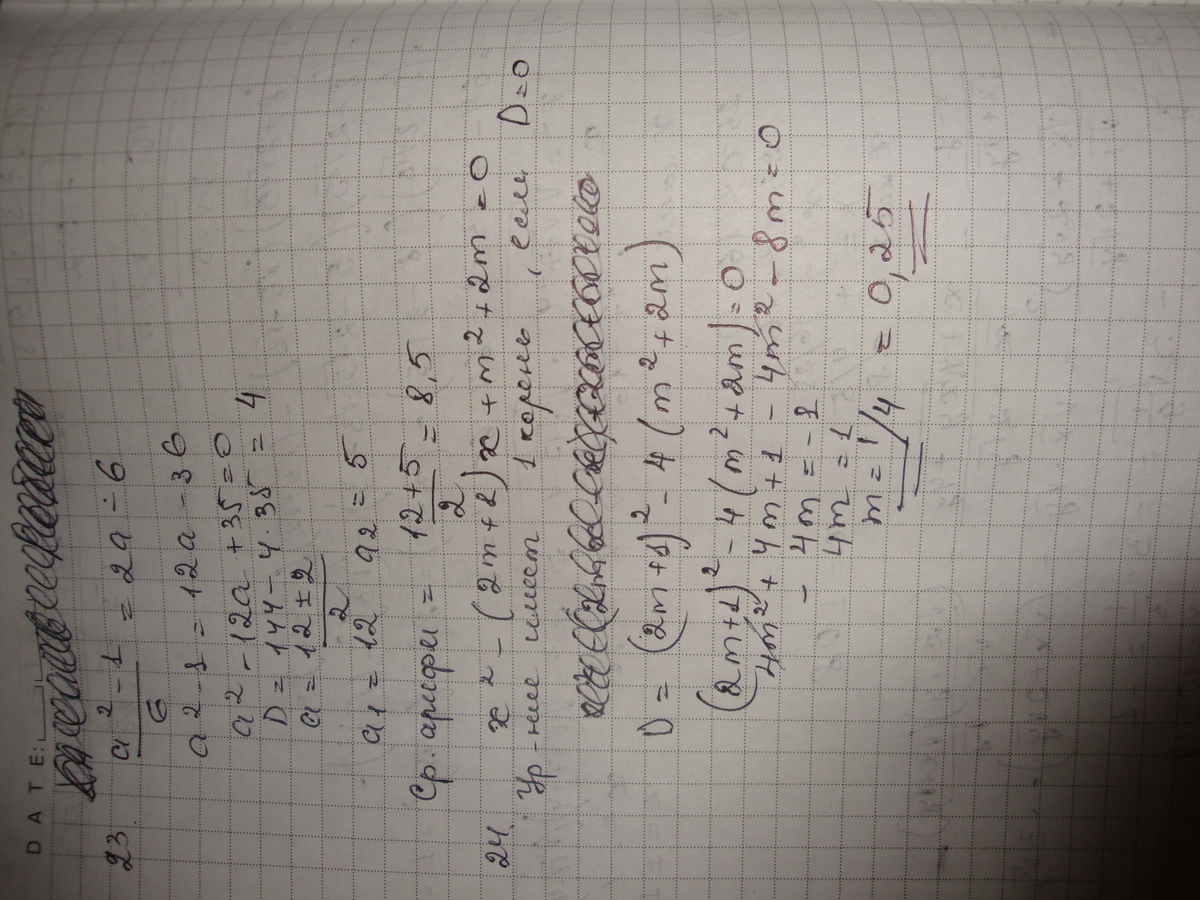 DATE:
23. a² - 1 / 6 = 2a - 6
a² - 1 = 12a - 36
a² - 12a + 35 = 0
D = 144 - 4·35 = 4
a = 12 ± 2 / 2
a1 = 12 a2 = 5
Ср. арифм = 12+5 / 2 = 8,5
24. x² - (2m+1)x + m² + 2m = 0
Ур-ние имеет 1 корень, если D=0
D = (2m+1)² - 4(m² + 2m)
(2m+1)² - 4(m² + 2m) = 0
4m² + 4m + 1 - 4m² - 8m = 0
- 4m = -1
4m = 1
m = 1/4 = 0,25